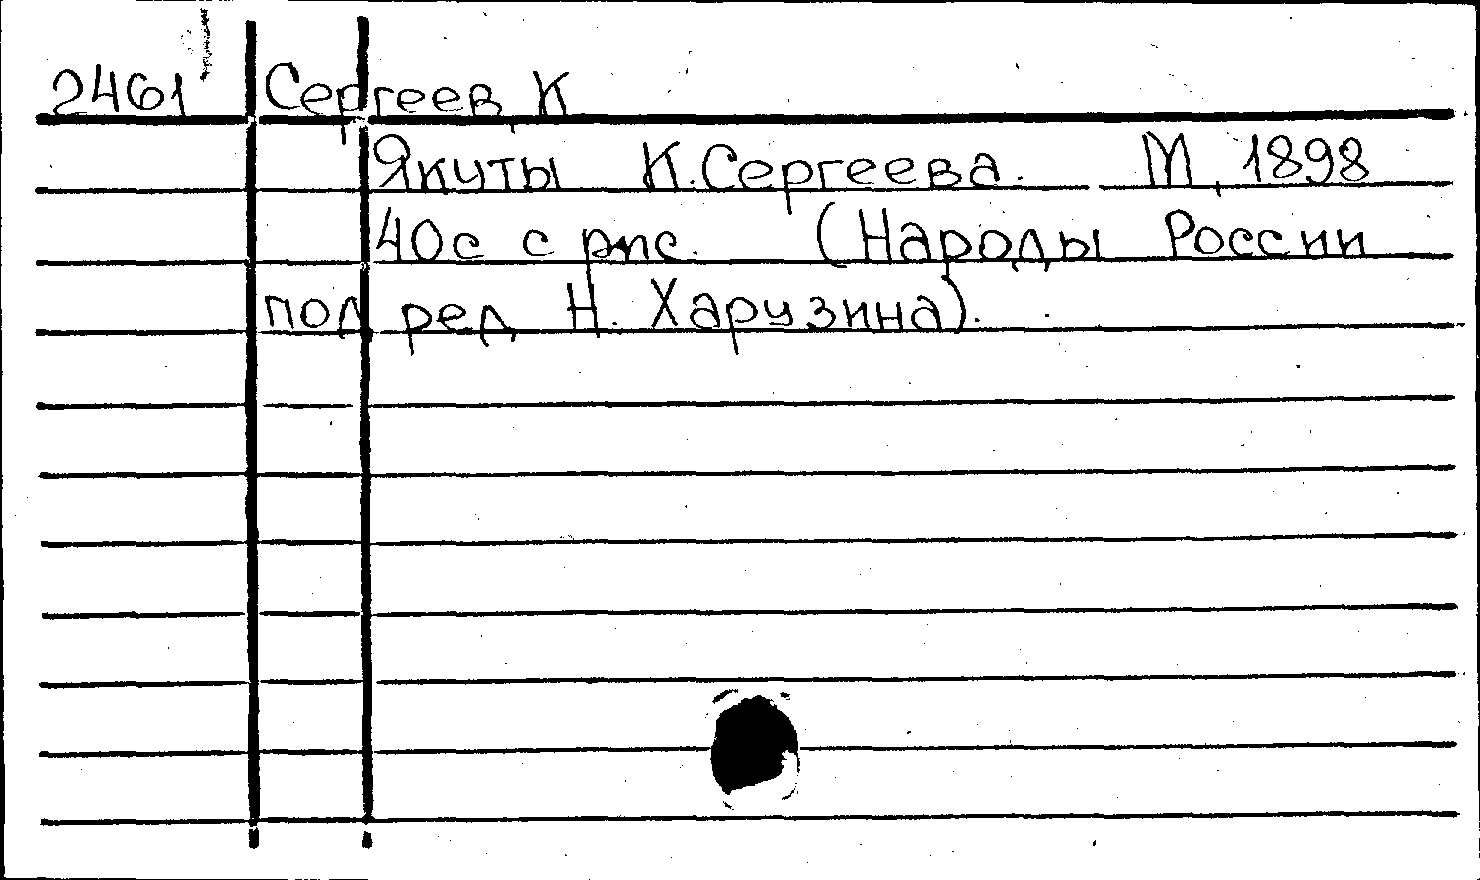 2461 Сергеев, К
Якуты К. Сергеева. М, 1898
40с с рис. (Народы России
под ред Н. Харузина).